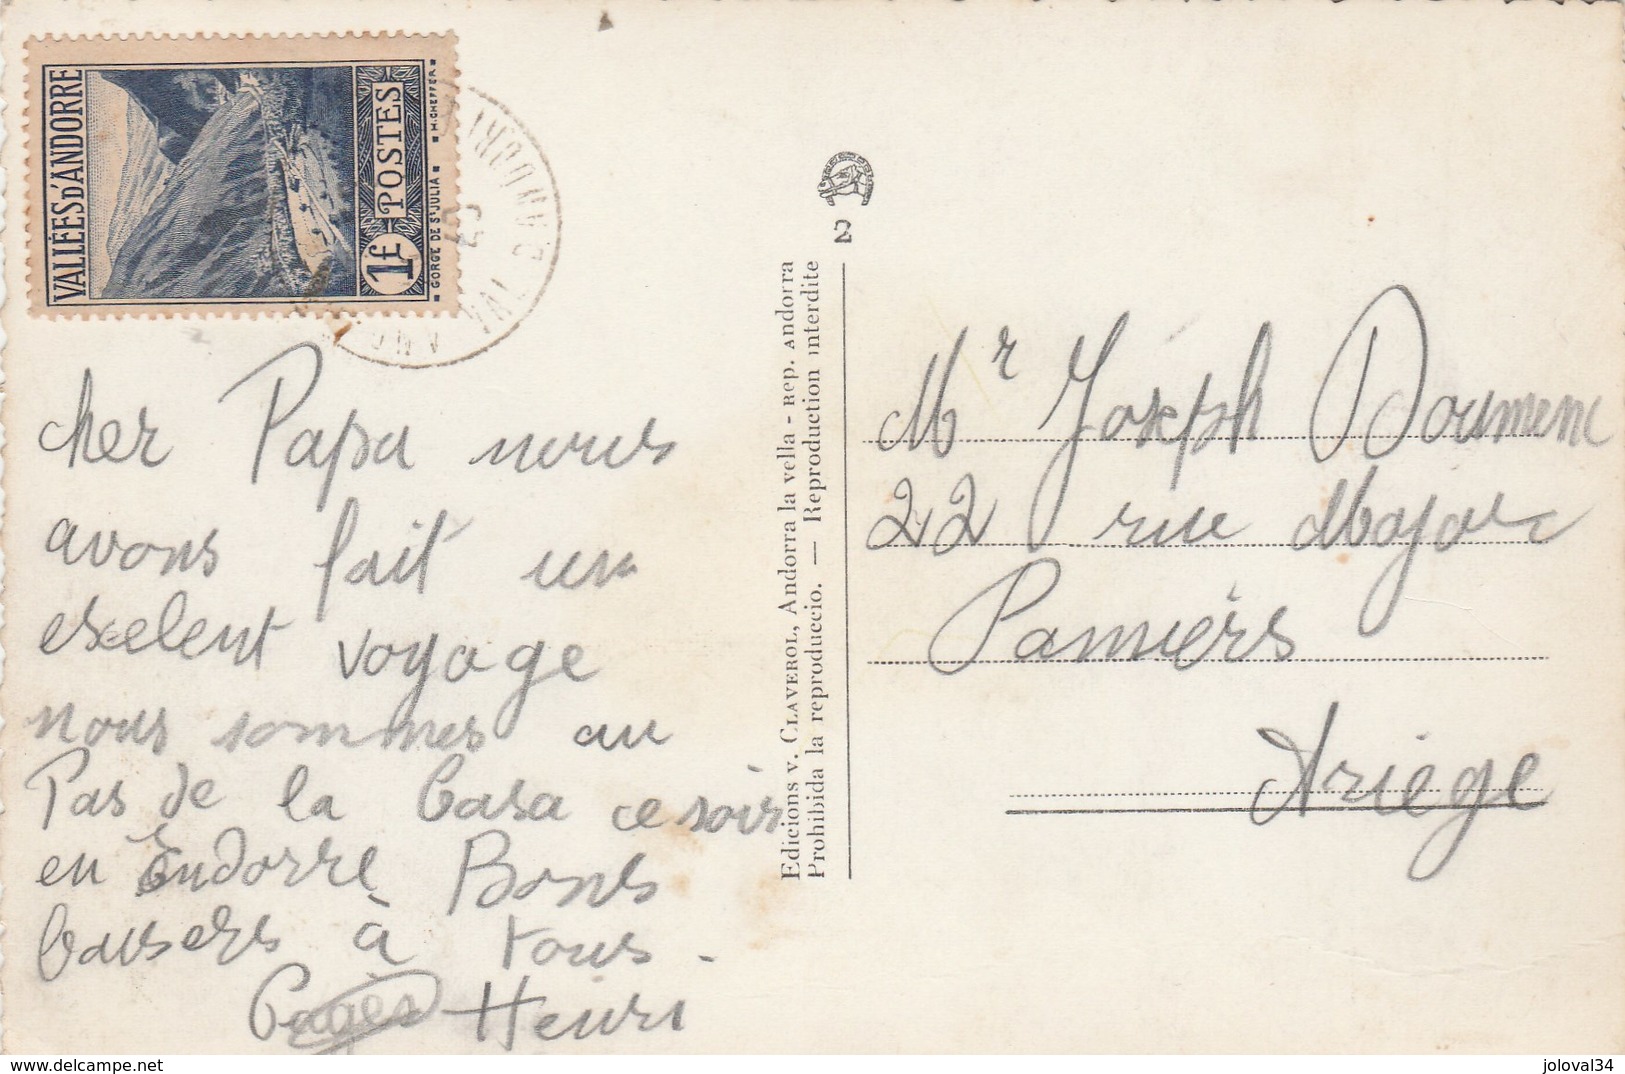 VALLÉES D'ANDORRE
1F POSTES
■ GORGE DE St JULIA ■ ■ M. CHEFFER ■
cher Papa nous
avons fait un
exelent voyage
nous sommes au
Pas de la Casa ce soir
en Endorre Bons
baisers à tous.
Henri
2
Edicions v. CLAVEROL, Andorra la vella - Rep. Andorra
Prohibida la reproduccio. — Reproduction interdite
Mr Joseph Doumenc
22 rue Major
Pamiers
Ariège
delcampe.net
joloval34